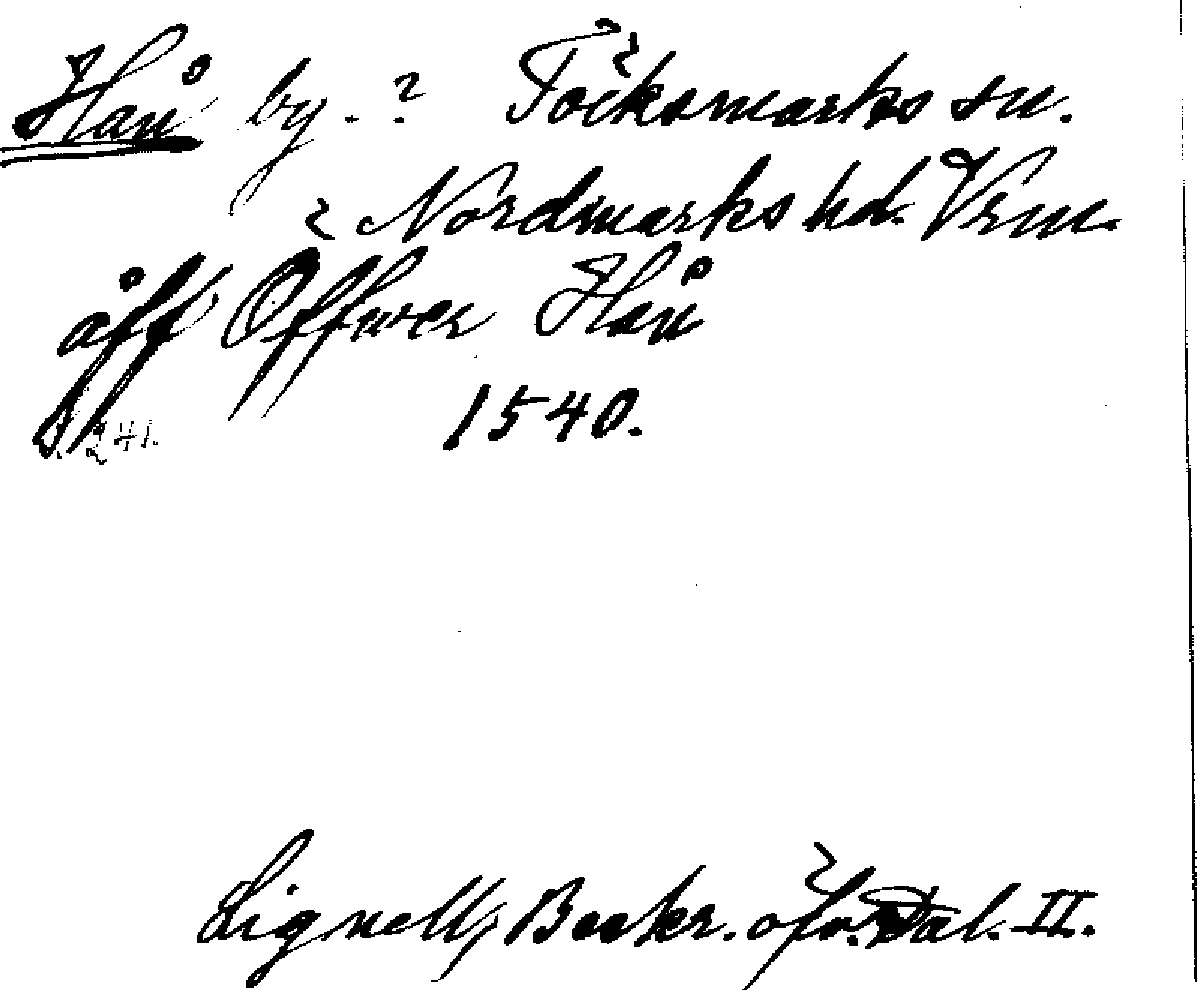 Hån by. ? Töcksmarks sn.
Nordmarks hd. Vrm.
åff Offwer Hån
1540.
S. 241.
Lignell, Beskr. öfv. Dal. II.